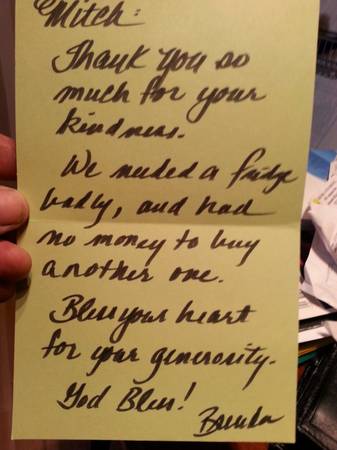 Mitch:
Thank you so
much for your
kindness.
We needed a fridge
badly, and had
no money to buy
another one.
Bless your heart
for your generosity.
God Bless!
Brenda